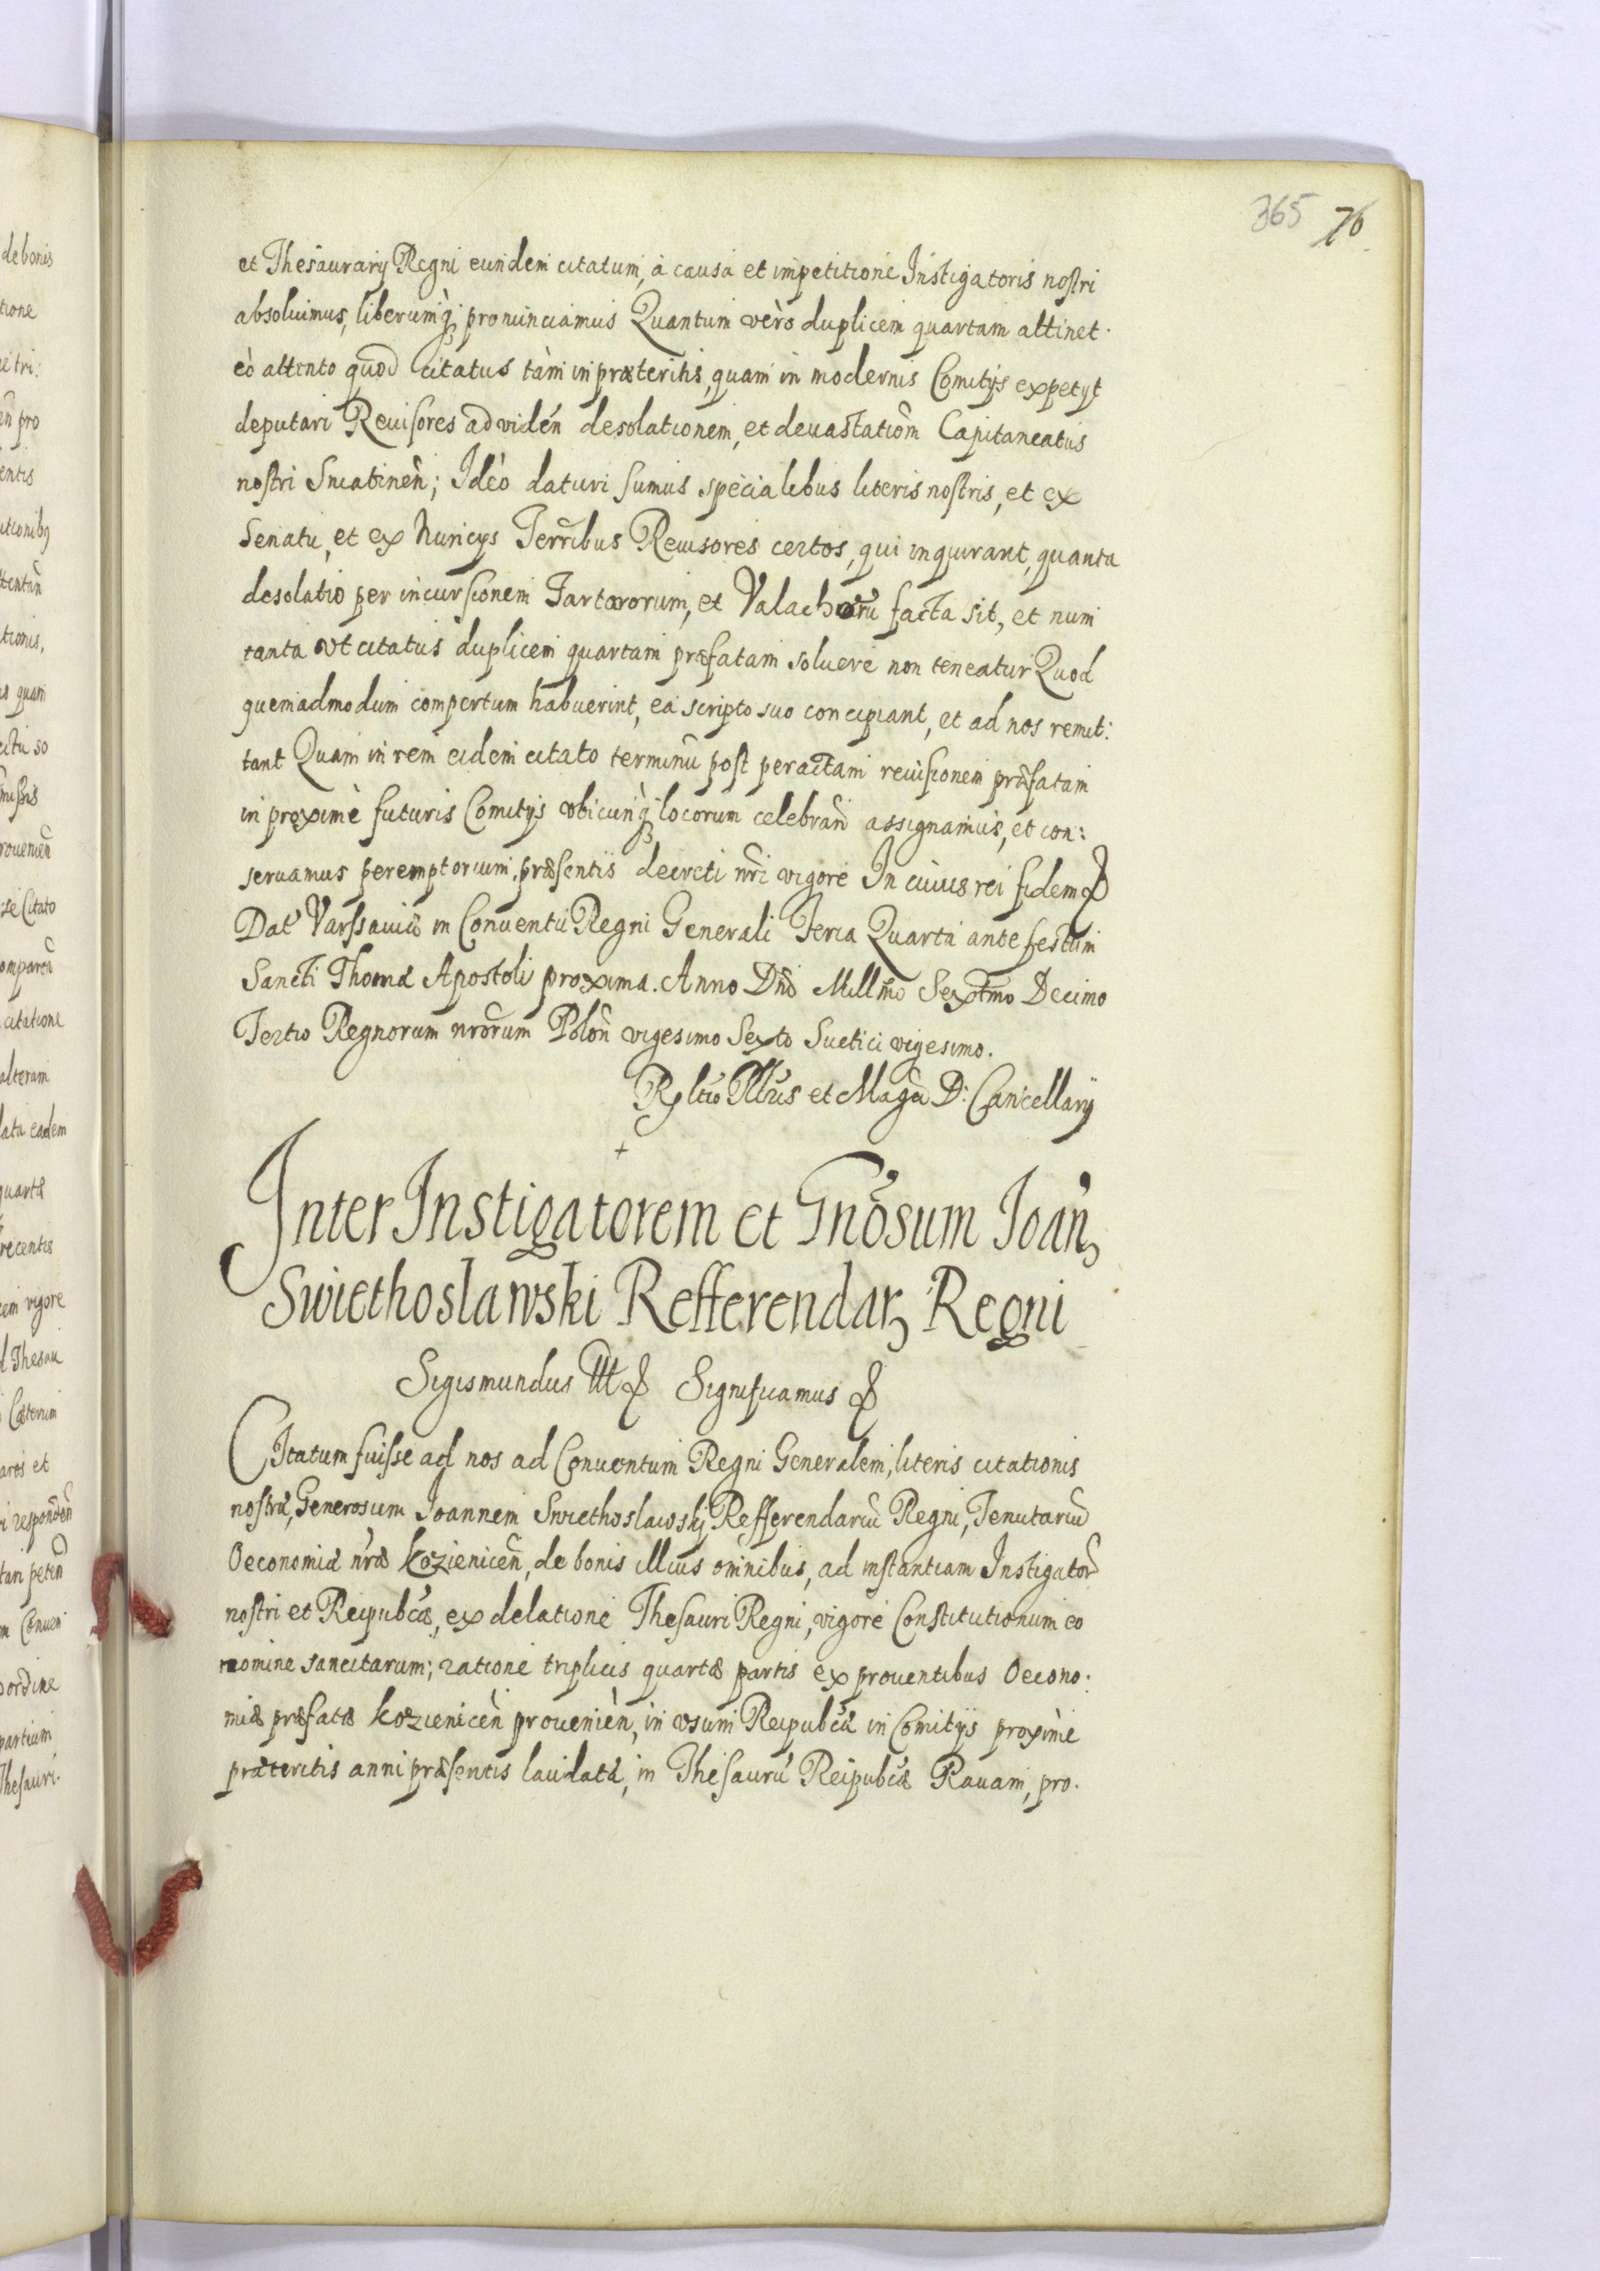 365 76
et Thesaurarij Regni eundem citatum, à causa et impetitione Instigatoris nostri
absoluimus, liberumq̀ pronunciamus Quantum verò duplicem quartam attinet.
eò attento quod citatus tàm in præteritis, quam in modernis Comitijs expetyt
deputari Reuisores ad vidén desolationem, et deuastatiom̃ Capitaneatus
nostri Sniatinen̄; Ideò daturi sumus specialibus literis nostris, et ex
Senatu, et ex Nuncys Terrıb̃us Reuisores certos, qui inquirant, quanta
desolatio per incursionem Tartarorum, et Valachorũ facta sit, et num
tanta vt citatus duplicem quartam præfatam soluere non teneatur Quod
quemadmodum compertum habuerint, ea scripto suo concipiant, et ad nos remit:
tant Quam in rem eidem citato terminũ post peractam reuisionem præfatam
in proximè futuris Comitijs vbicunq̀ locorum celebrañ assignamus, et con:
seruamus peremptorium. præsentis decreti nr̃i vigore In cuius rei fidem
Dat Varssauiæ in Conuentu Regni Generali Feria Quarta ante festum
Sancti Thomæ Apostoli proxima. Anno Dñi Mill̃mo Sexctmo Decimo
Tertio Regnorum nr̃orum Polon̄ vigesimo Sexto Suetici vigesimo.
Rltio Illũs et Magci D: Cancellarij
+
Inter Instigatorem et Gnõsum Ioañ
Swiethoslawski Refferendar Regni
Sigismundus III Significamus
Citatum fuisse ad nos ad Conuentum Regni Generalem, literis citationis
nostræ, Generosum Joannem Swiethoslawskj Refferendariũ Regni, Tenutariũ
Oeconomiæ nr̃æ Kozienicen̄, de bonis illius omnibus, ad instantiam Instigator
nostri et Reipubcæ, ex delatione Thesauri Regni, vigore Constitutionum eo
nomine sancitarum; ratione triplicis quartæ partis ex prouentibus Oecono:
miæ præfatæ Kozienicen̄ prouenien̄, in vsum Reipubcæ in Comitijs proximè
præteritis anni præsentis laudatæ, in Thesaurũ Reipubcæ Rauam, pro.